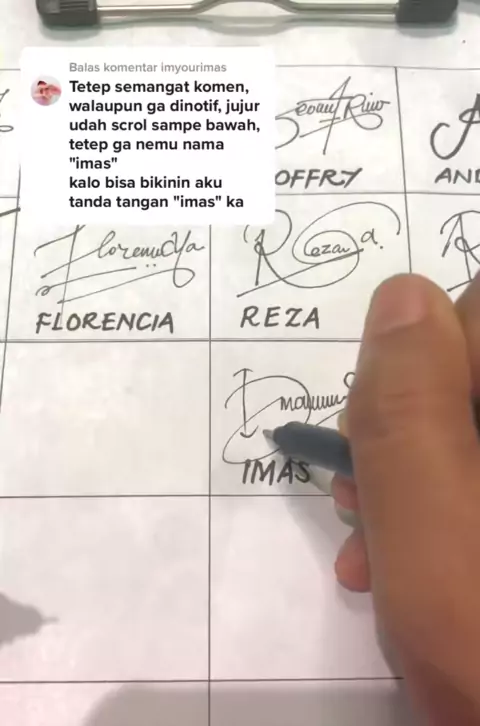 Balas komentar imyourimas
Tetep semangat komen,
walaupun ga dinotif, jujur
udah scrol sampe bawah,
tetep ga nemu nama
"imas"
kalo bisa bikinin aku
tanda tangan "imas" ka
OFFRY
AND
FLORENCIA
REZA
IMAS